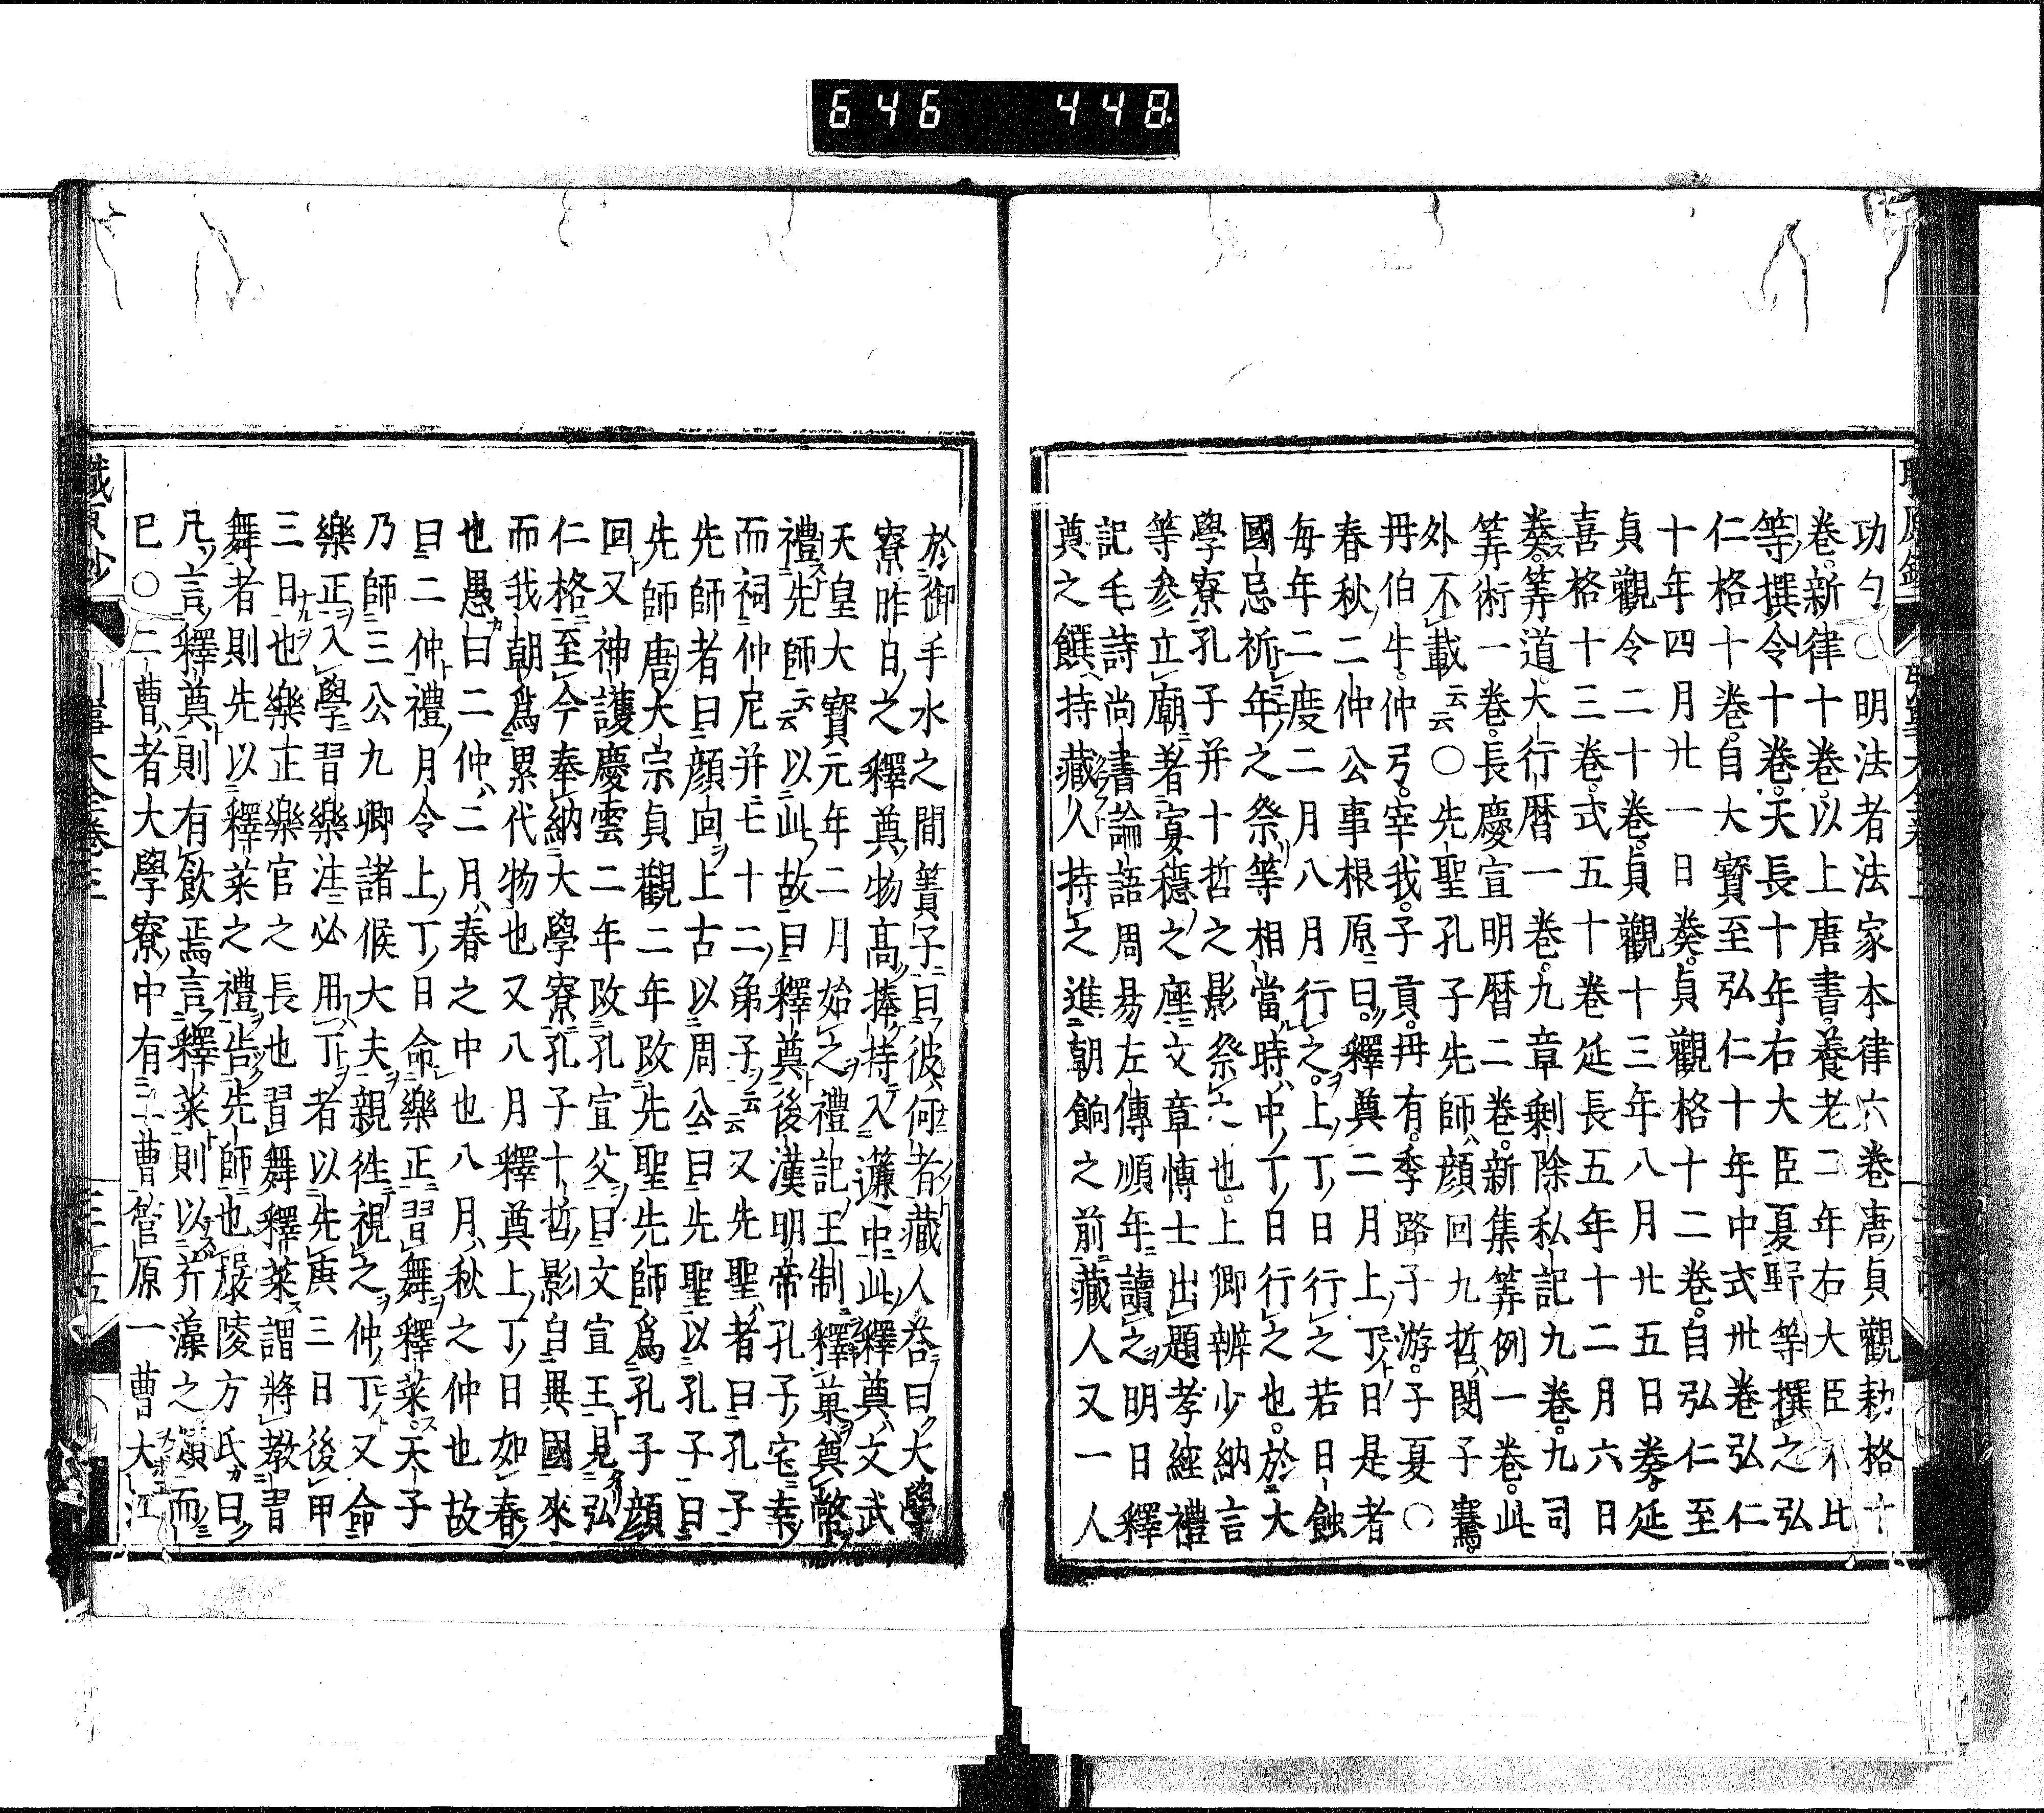 646 448
功勺○明法者法家本律六卷唐貞觀勅格十
卷新律十卷以上唐書養老二年右大臣不比
等撰令十卷天長十年右大臣夏野等撰之弘
仁格十卷自大寶至弘仁十年中式卅卷弘仁
十年四月廿一日奏貞觀格十二卷自弘仁至
貞觀令二十卷貞觀十三年八月廿五日奏延
喜格十三卷式五十卷延長五年十二月六日
奏筭道大行曆一卷九章剩除私記九卷九司
筭術一卷長慶宣明曆二卷新集筭例一卷此
外不載云云○先聖孔子先師顔回九哲閔子騫
冊伯牛仲弓宰我子貢冊有季路子游子夏○
春秋二仲公事根原曰釋奠二月上丁日是者
每年二度二月八月行之上丁日行之若日蝕
國忌祈年之祭等相當時中丁日行之也於大
學寮孔子并十哲之影祭也上卿辨少納言
等參立廟著宴穩之座文章愽士出題孝經禮
記毛詩尚書論語周易左傳順年讀之明日釋
奠之饌持藏人持之進朝餉之前藏人又一人
於御手水之間簀子曰彼何者藏人荅曰大學
寮昨日之釋奠物高捧持入簾中此釋奠文武
天皇大寶元年二月始之禮記王制釋菓奠幣
禮先師云云以此故曰釋奠後漢明帝孔子宅幸
而祠仲尼并七十二弟子云云又先聖者曰孔子
先師者曰顔回上古以周公曰先聖以孔子曰
先師唐大宗貞觀二年改先聖先師爲孔子顔
回又神護慶雲二年改孔宣父曰文宣王見弘
仁格至今奉納大學寮孔子十哲影自異國來
而我朝爲累代物也又八月釋奠上丁日如春
也愚曰二仲二月春之中也八月秋之仲也故
曰二仲禮月令上丁日命樂正習舞釋菜天子
乃師三公九卿諸候大夫親徃視之仲丁又命
樂正入學習樂注必用丁者以先庚三日後甲
三日也樂正樂官之長也習舞釋菜謂將教習
舞者則先以釋菜之禮告先師也嚴陵方氏曰
凡言釋奠則有飮焉言釋菜則以芹藻之類而
已○二曹者大學寮中有二曹菅原一曹大江